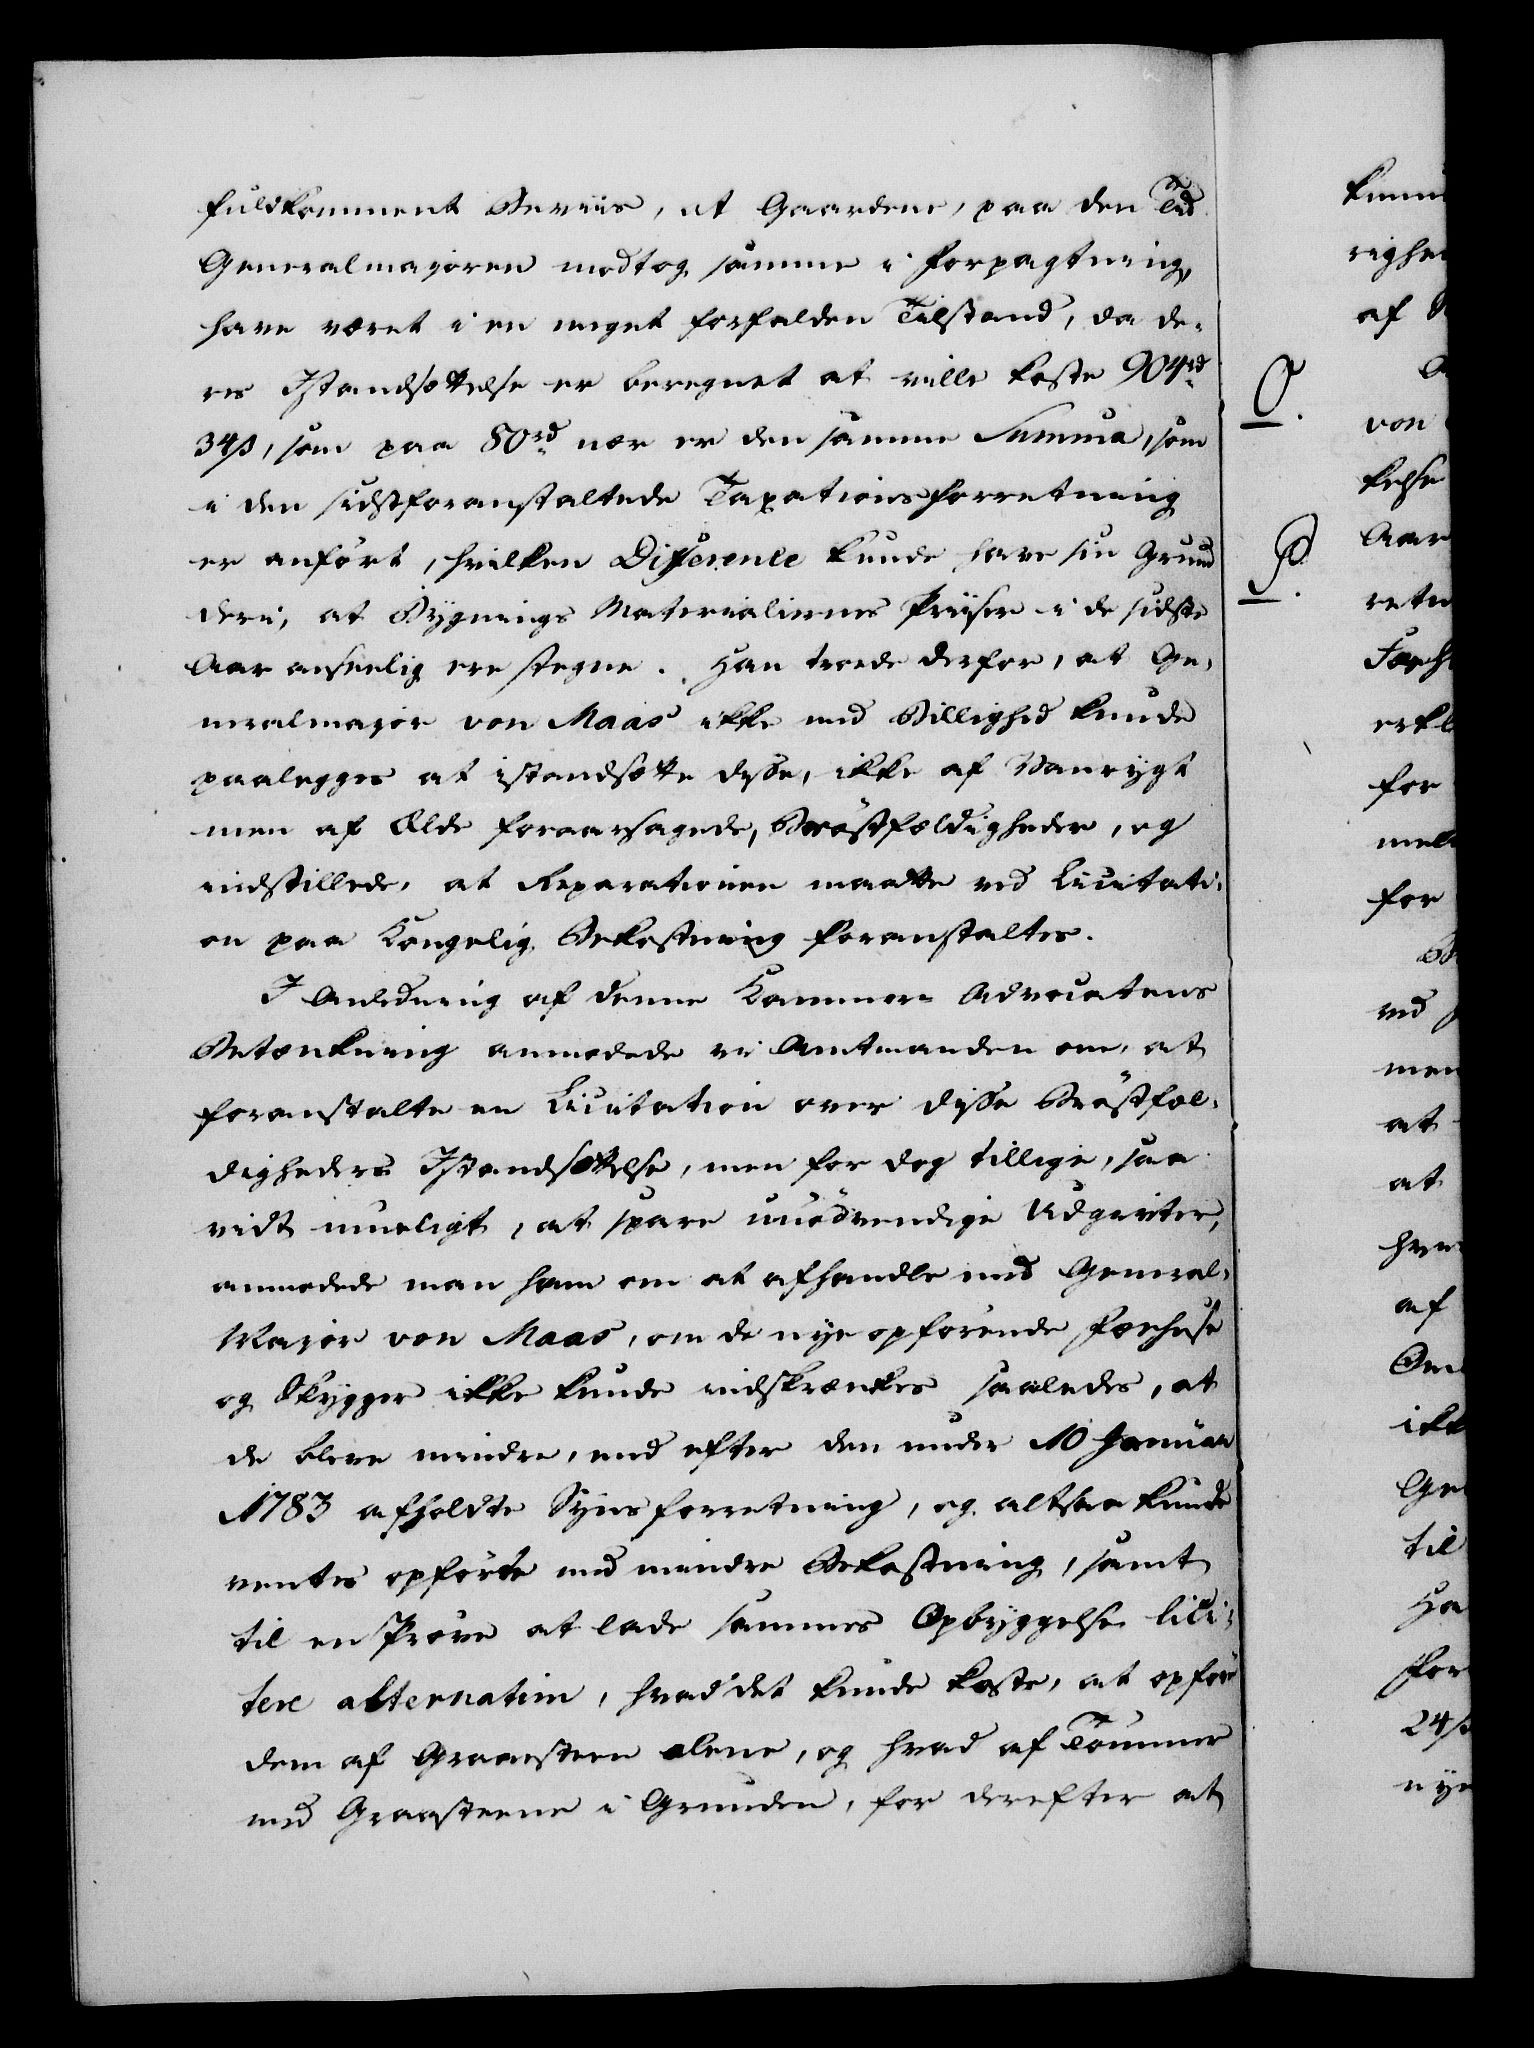 fuldkomment Beviis, at Gaardene, paa den Tid
Generalmajoren modtog samme i Forpagtning,
have været i en meget forfalden Tilstand, da de-
res Istandsættelse er beregnet at ville koste 904 rd
34 ß, som paa 80 rd nær er den samme Summa, som
i den sidstforanstaltede Taxationsforretning
er anført, hvilken Difference kunde have sin Grund
deri, at Bygnings Materialiernes Priiser i de sidste
Aar anseelig ere stegne. Han troede derfor, at Ge-
neralmajor von Maas ikke med Billighed kunde
paalegges at istandsætte disse, ikke af Vanrygt
men af Ælde foraarsagede, Bröstfældigheder, og
indstillede, at Reparationen maatte ved Licitati-
on paa Kongelig Bekostning foranstaltes.
I Anledning af denne Kammer-Advocatens
Betænkning anmodede vi Amtmanden om, at
foranstalte en Licitation over disse Bröstfæl-
digheders Istandsættelse, men for dog tillige, saa
vidt mueligt, at spare unödvendige Udgivter,
anmodede man ham om at afhandle med General-
Major von Maas, om de nye opförende Fæehuse
og Skygger ikke kunde indskrænkes saaledes, at
de bleve mindre, end efter den under 10 Januar
1783 afholdte Synsforretning, og altsaa kunde
ventes opförte med mindre Bekostning, samt
til en Pröve at lade sammes Opbyggelse lici-
tere alternativ, hvad det kunde koste, at opföre
dem af Graasteen alene, og hvad af Tömmer
med Graasteene i Grunden, for derefter at
righe
af
O.
von
kelse
P.
Aar
for
for
ved
men
at
at
af
ikk
til
Ha
For
24 ß
nye